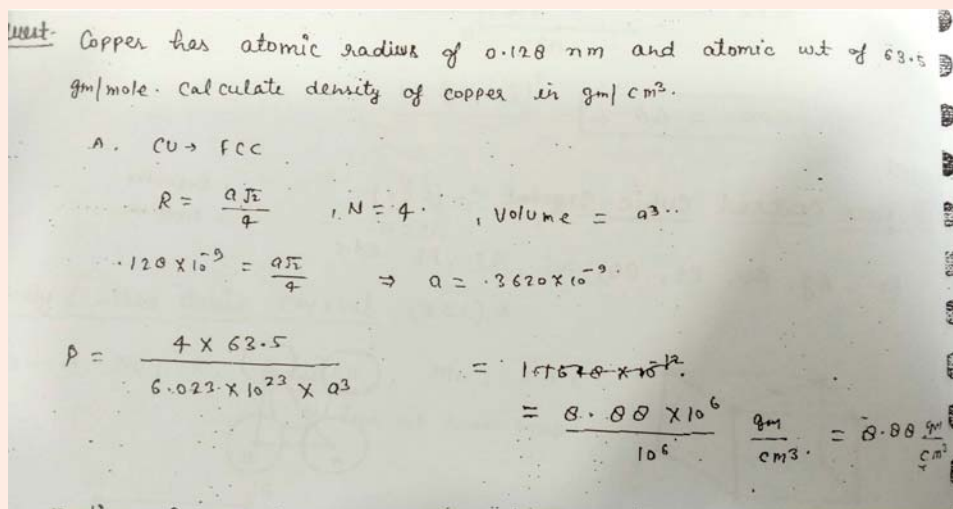 Copper has atomic radius of 0.128 nm and atomic wt of 63.5
gm/mole. Calculate density of copper in gm/cm³.
A. CU → FCC
R = a√2/4 , N = 4. , Volume = a³
.128 × 10⁻⁹ = a√2/4 ⇒ a = .3620 × 10⁻⁹
ρ = 4 × 63.5 / 6.023 × 10²³ × a³
= 8.88 × 10⁶ / 10⁶ gm/cm³. = 8.88 gm/cm³